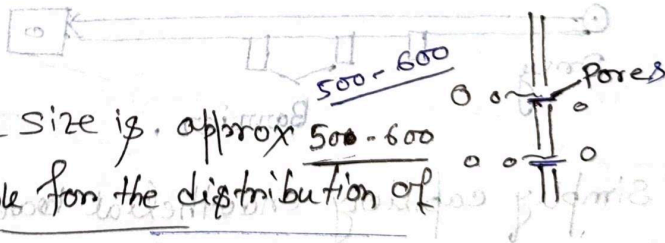 500 - 600
Pores
size is. approx 500-600
for the distribution of